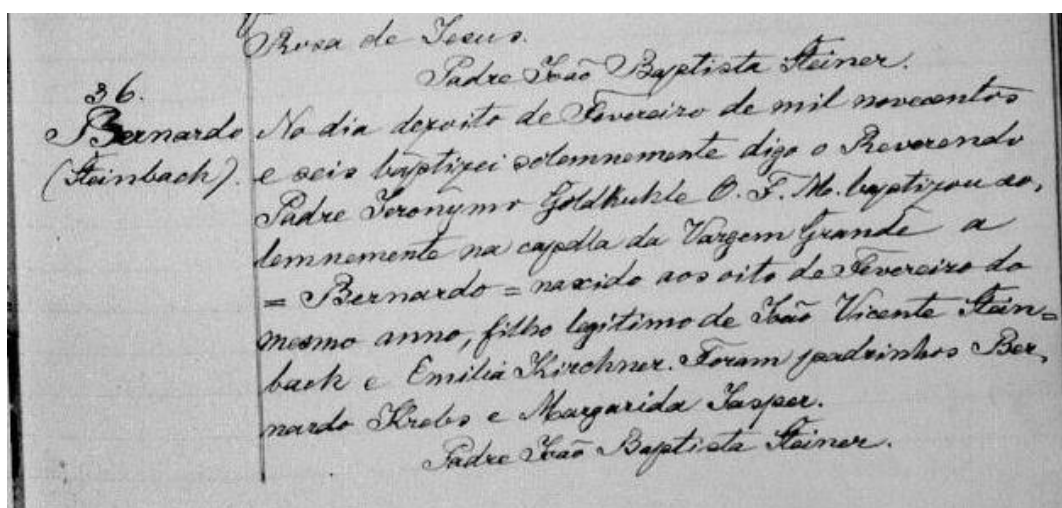 Rosa de Jesus.
Padre João Baptista Steiner.
36.
Bernardo
(Steinbach).
No dia dezoito de Fevereiro de mil novecentos
e seis baptizei solemnemente digo o Reverendo
Padre Jeronymo Goldkuhle O. F. M. baptizou so,
lemnemente na capella da Vargem Grande a
= Bernardo = nascido aos oito de Fevereiro do
mesmo anno, filho legitimo de João Vicente Stein=
bach e Emilia Kirchner. Foram padrinhos Ber,
nardo Krebs e Margarida Jasper.
Padre João Baptista Steiner.